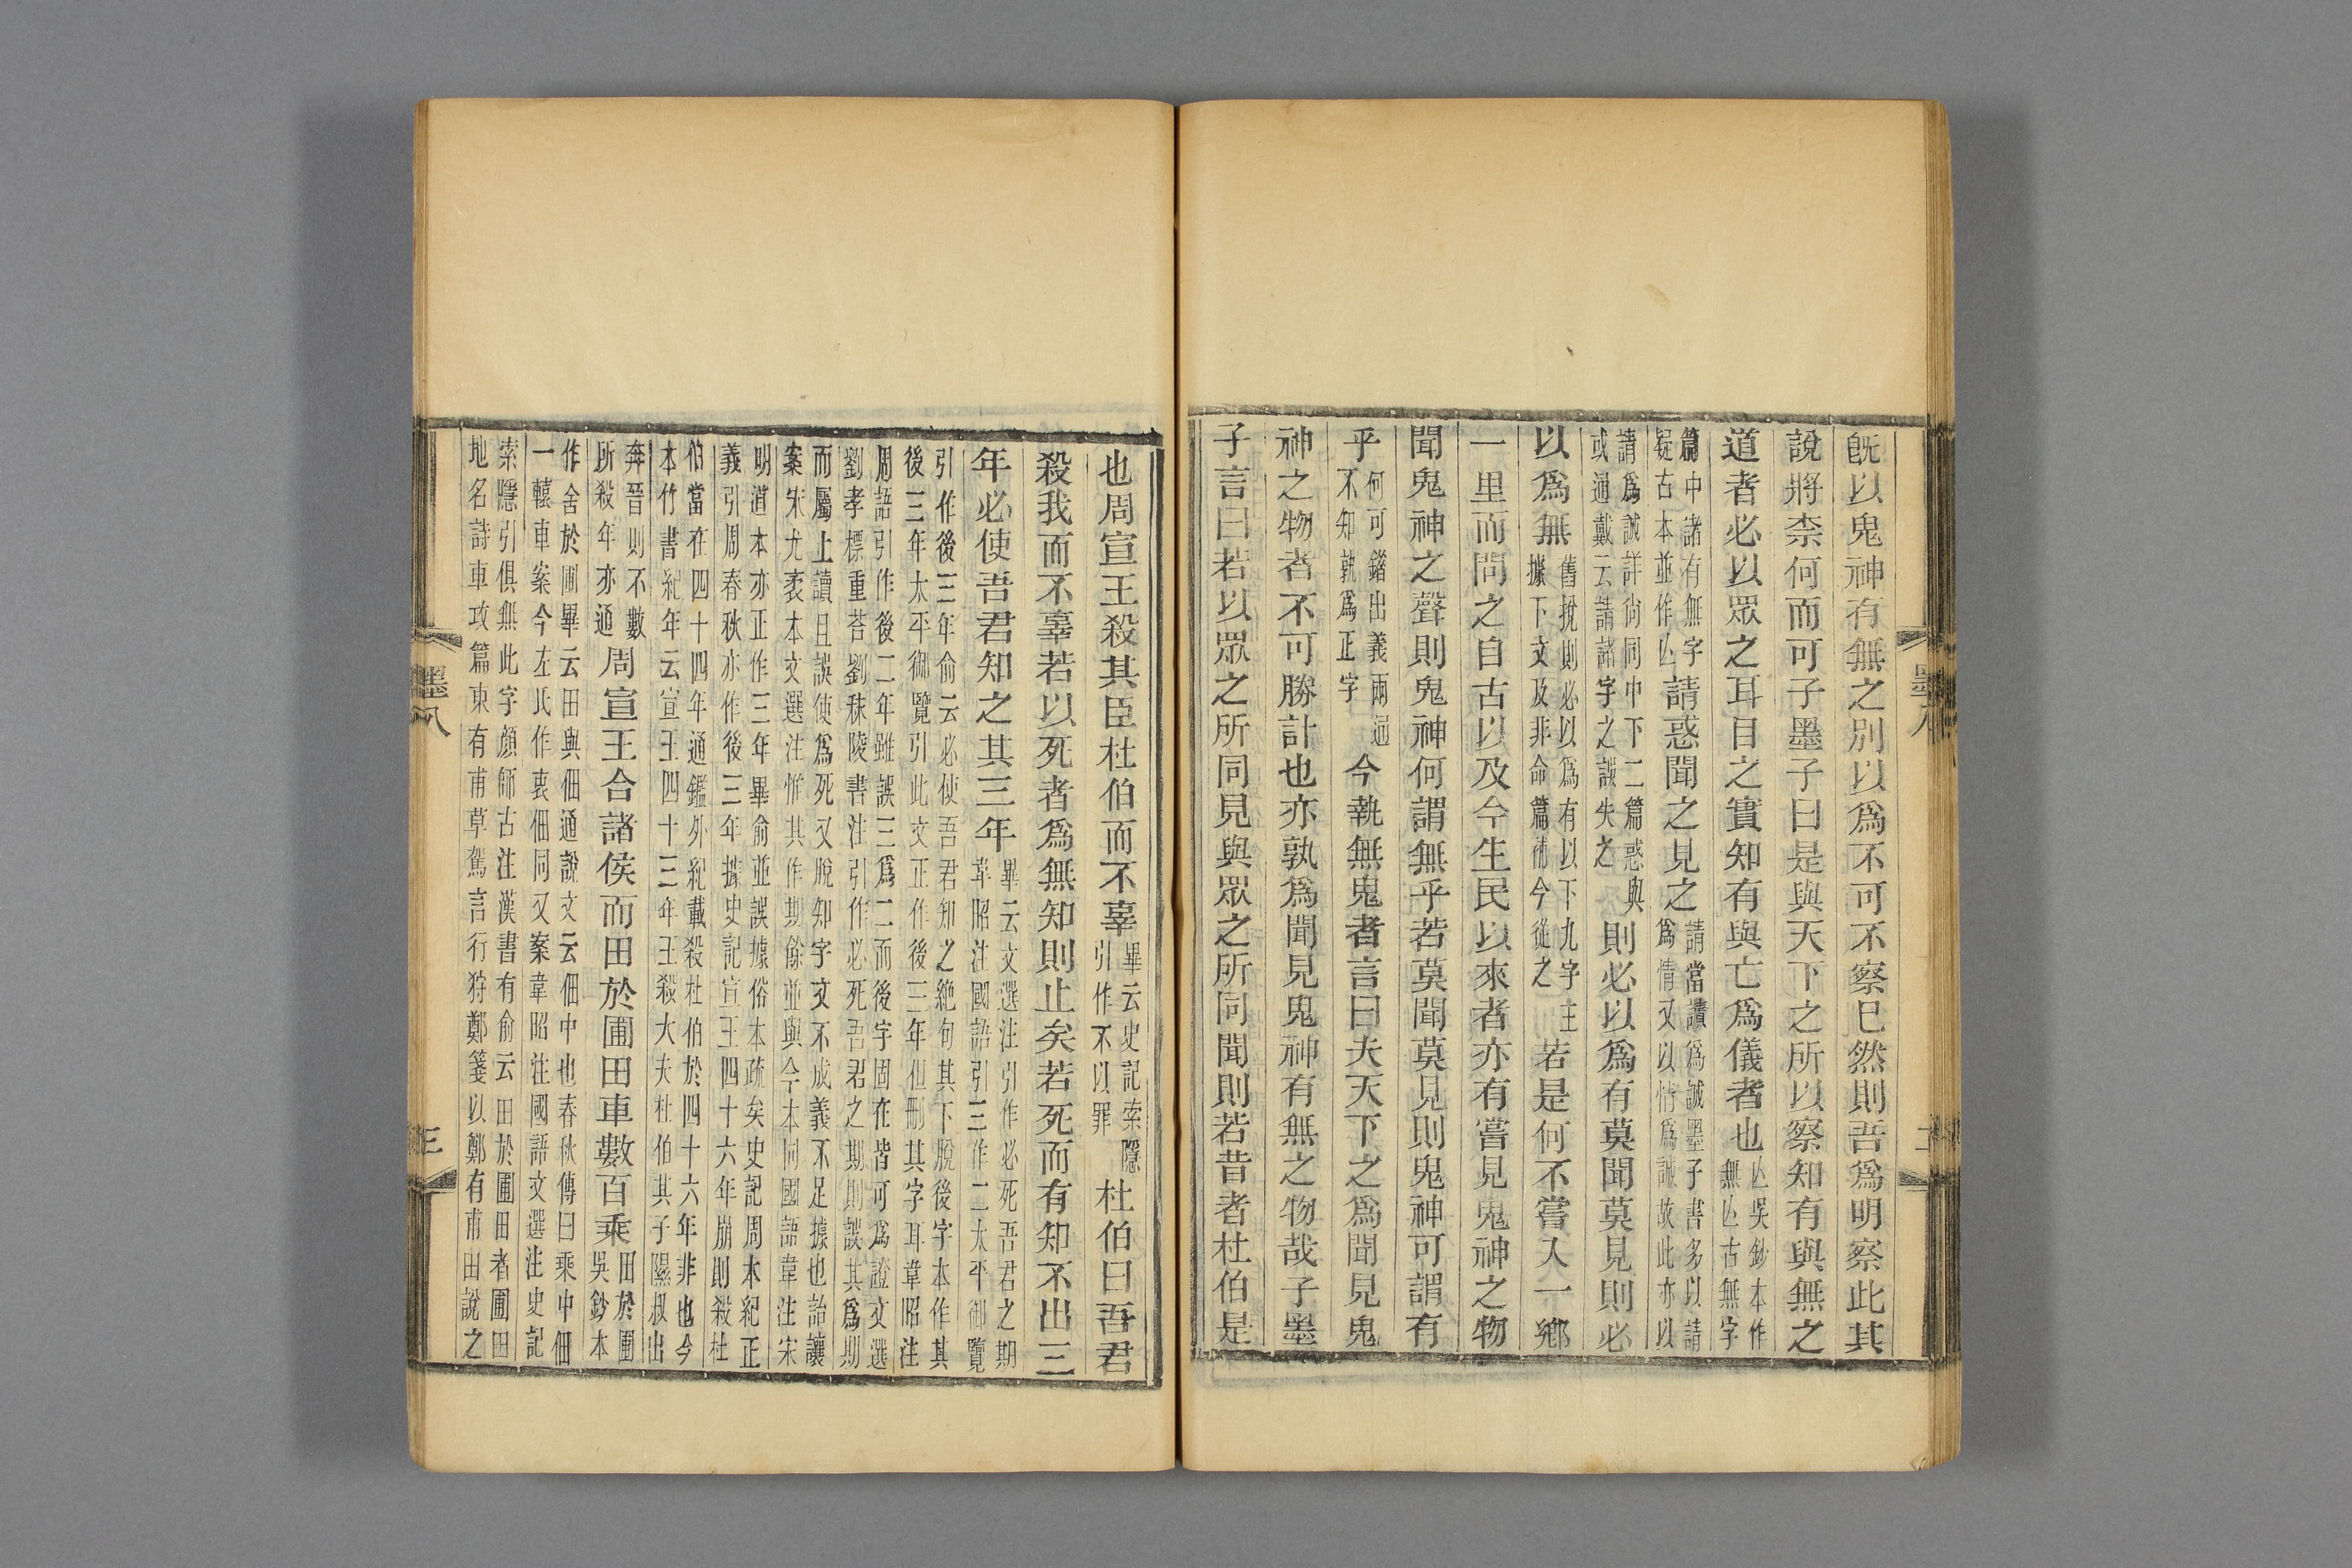 旣以鬼神有無之別以爲不可不察已然則吾爲明察此其
說將柰何而可子墨子曰是與天下之所以察知有與無之
道者必以眾之耳目之實知有與亡爲儀者也亾吳鈔本作無亾古無字
篇中諸有無字疑古本並作亾請惑聞之見之請當讀爲誠墨子書多以請爲情又以情爲誠故此亦以
請爲誠詳尙同中下二篇惑與或通戴云請諸字之誤失之則必以爲有莫聞莫見則必
以爲無舊挩則必以爲有以下九字王據下文及非命篇補今從之若是何不嘗入一鄉
一里而問之自古以及今生民以來者亦有嘗見鬼神之物
聞鬼神之聲則鬼神何謂無乎若莫聞莫見則鬼神可謂有
乎何可錯出義兩通不知孰爲正字今執無鬼者言曰夫天下之爲聞見鬼
神之物者不可勝計也亦孰爲聞見鬼神有無之物哉子墨
子言曰若以眾之所同見與眾之所同聞則若昔者杜伯是
墨八
二
也周宣王殺其臣杜伯而不辜畢云史記索隱引作不以罪杜伯曰吾君
殺我而不辜若以死者爲無知則止矣若死而有知不出三
年必使吾君知之其三年畢云文選注引作必死吾君之期韋昭注國語引三作二太平御覽
引作後三年俞云必使吾君知之絶句其下脫後字本作其後三年太平御覽引此文正作後三年但刪其字耳韋昭注
周語引作後二年雖誤三爲二而後字固在皆可爲證文選劉孝標重荅劉秣陵書注引作必死吾君之期則誤其爲期
而屬上讀且誤使爲死又脫知字文不成義不足據也詒讓案宋尤袤本文選注惟其作期餘並與今本同國語韋注宋
明道本亦正作三年畢俞並誤據俗本疏矣史記周本紀正義引周春秋亦作後三年據史記宣王四十六年崩則殺杜
伯當在四十四年通鑑外紀載殺杜伯於四十六年非也今本竹書紀年云宣王四十三年王殺大夫杜伯其子隰叔出
奔晉則不數所殺年亦通周宣王合諸侯而田於圃田車數百乘田於圃吳鈔本
作舍於圃畢云田與佃通說文云佃中也春秋傳曰乘中佃一轅車案今左氏作衷佃同又案韋昭注國語文選注史記
索隱引俱無此字顏師古注漢書有俞云田於圃田者圃田地名詩車攻篇東有甫草駕言行狩鄭箋以鄭有甫田說之
墨八
三